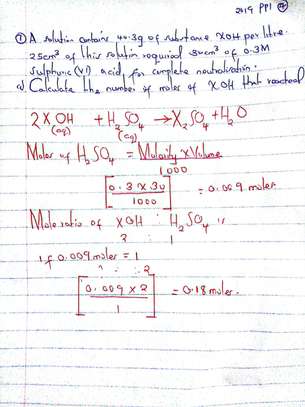 2019 PP1
① A solution contains 40.3g of substance XOH per litre.
25cm³ of this solution required 30cm³ of 0.3M
sulphuric (VI) acid for complete neutralisation.
a) Calculate the number of moles of XOH that reacted
2XOH + H₂SO₄ → X₂SO₄ + H₂O
(aq) (aq)
Moles of H₂SO₄ = Molarity x Volume
1000
[0.3 x 30 = 0.009 moles
1000]
Mole ratio of XOH : H₂SO₄ is
2 : 1
if 0.009 moles = 1
? : 2
[0.009 x 2 = 0.18 moles.
1]